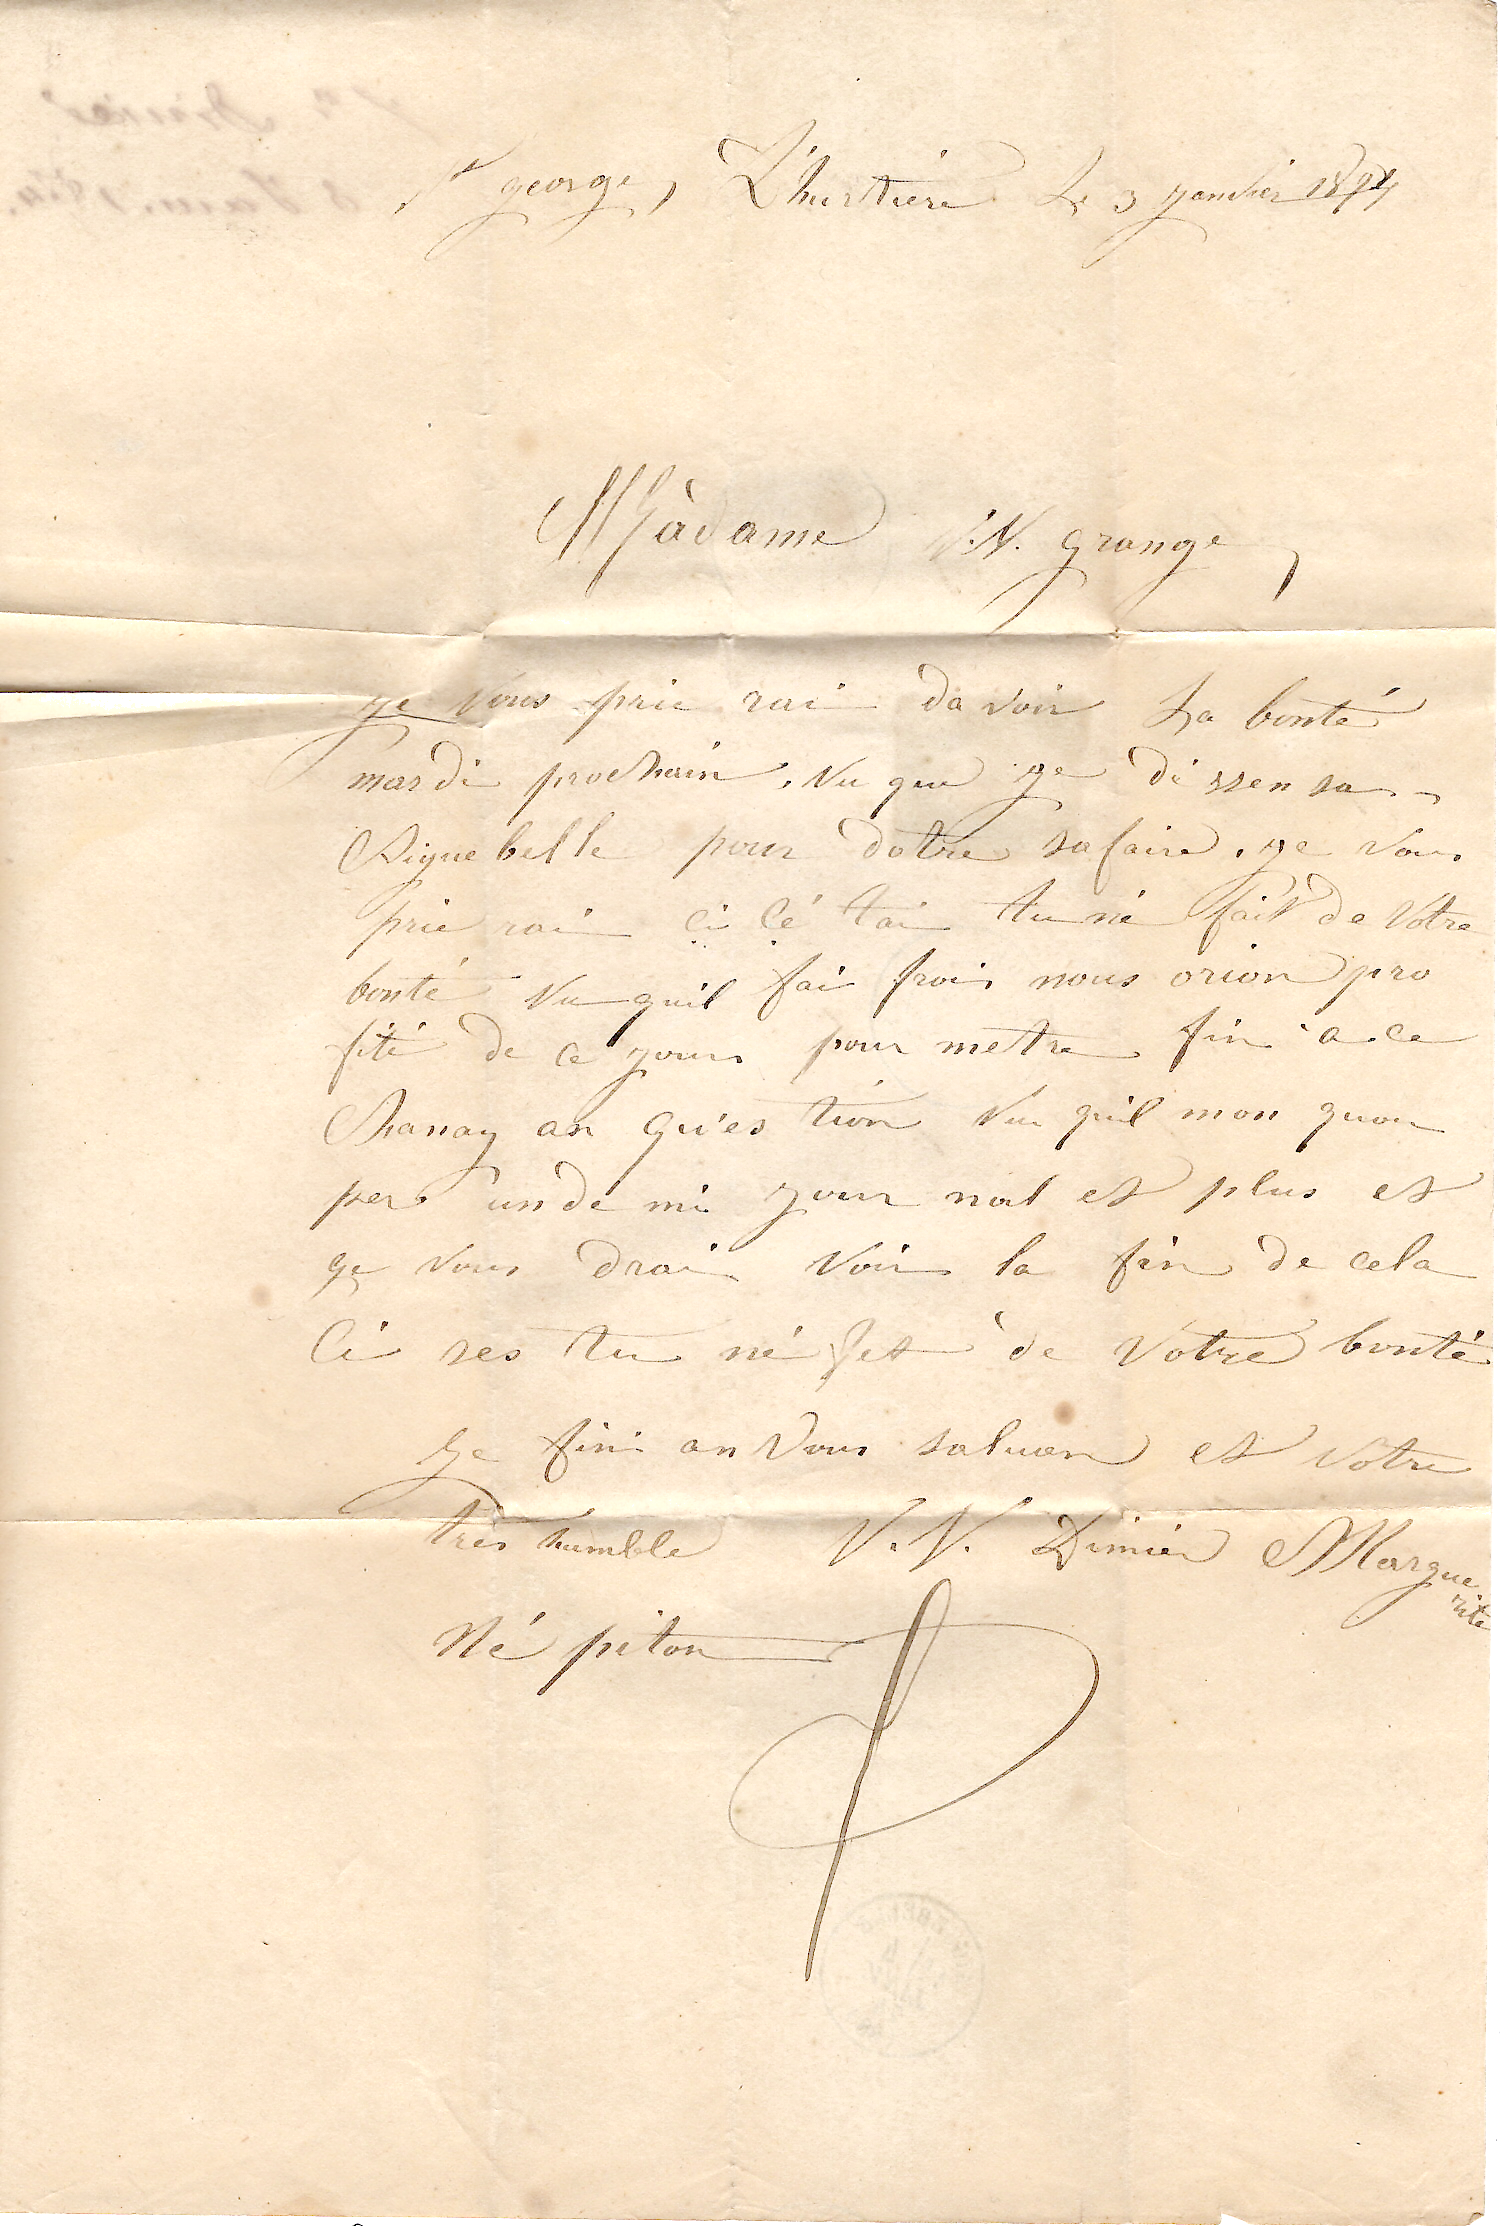 St george, L'hurtiere Le 3 janvier 1874
Màdame V.V. grange,
ge vous prie rai da voir La bonté
mardi prochain, vu que ge déssen sa
Aiguebelle pour dotre safaire, ge vous
prie rai ci cé tai tu né fait de Votre
bonté vu quil fai froi nous orion pro
fité de ce jour pour metre fin a ce
Chanay an qu'es tion vu quil mon quou
per un de mi jour nal et plus et
ge vous drai voir la fin de cela
Ci ses tu né fet de Votre bonté
Ge fini an Vous saluan et Votre
très humble V.V. Dimier Margue
rite
Né piton